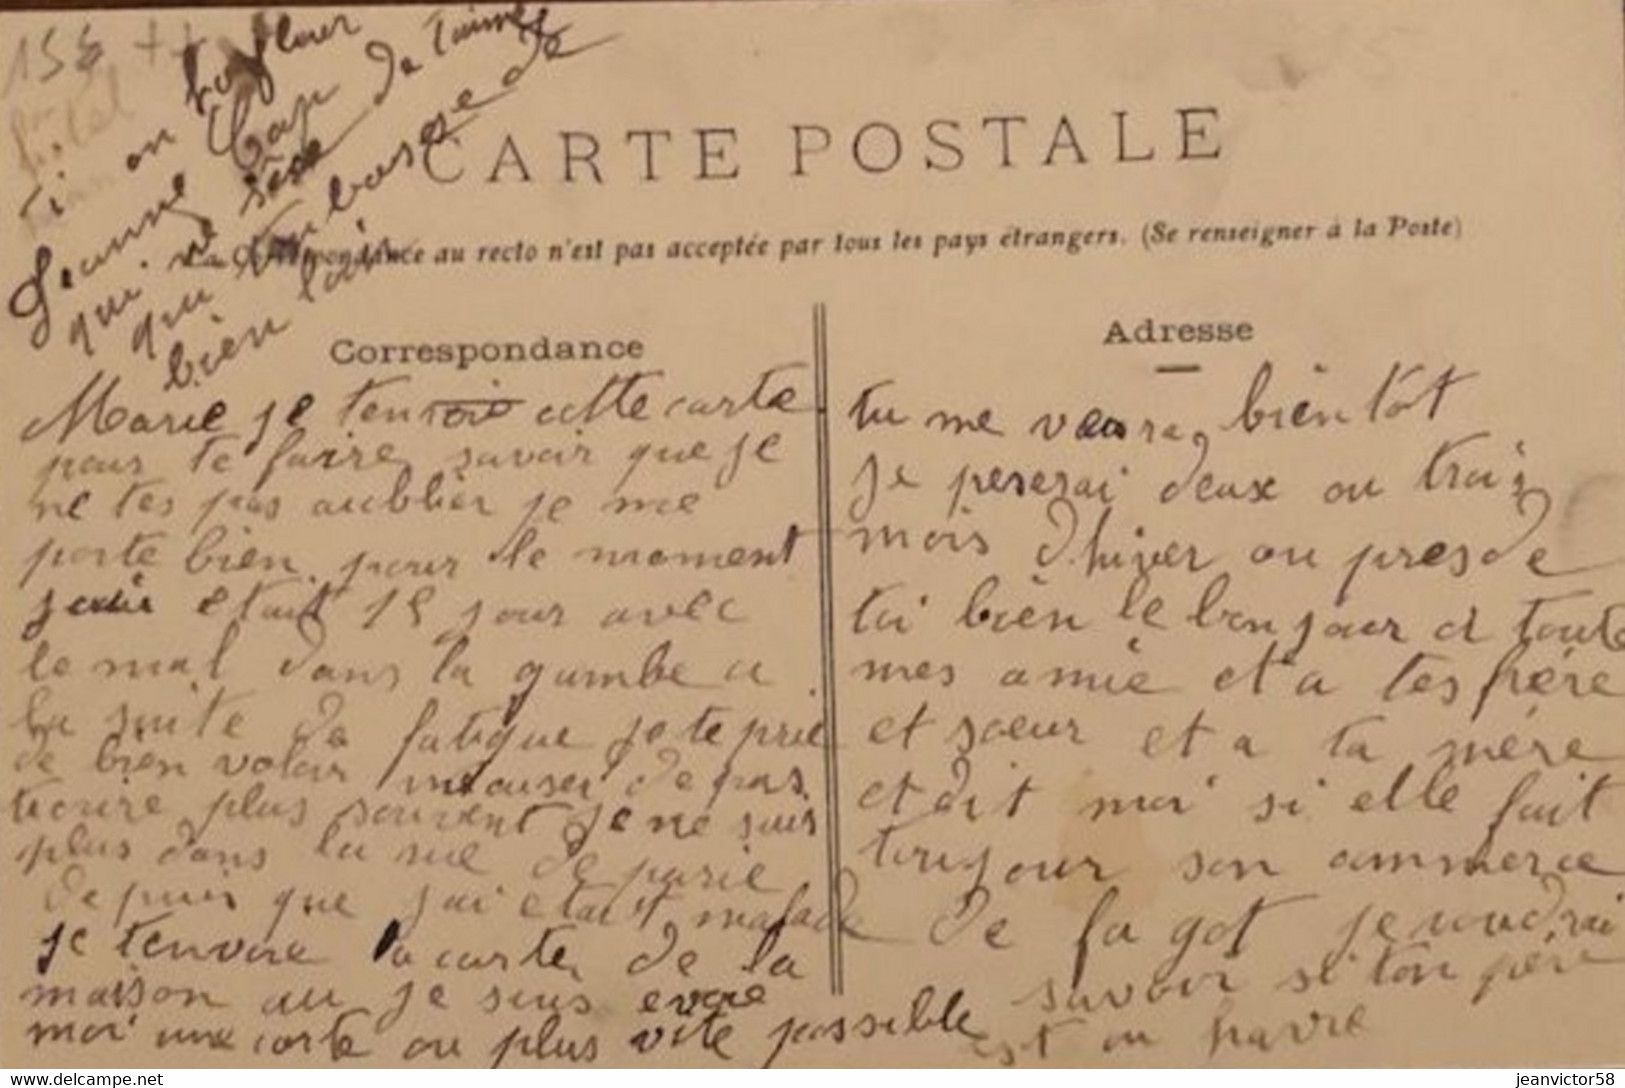 155 ++
hôtel
CARTE POSTALE
La Correspondance au recto n'est pas acceptée par tous les pays étrangers. (Se renseigner à la Poste)
Correspondance
Marie je tenvoie cette carte
pour te faire savoir que je
ne tes pas aublier je me
porte bien pour le moment
etait 15 jour avec
le mal dans la gambe a
la suite de fatigue je te prie
de bien voloir mecuser de pas
tecrire plus souvent je ne suis
plus dans la rue de parie
depuis que jai etait malade
je tenvoie la carte de la
maison au je suis
moi une carte ou plus vite possible
Adresse
tu me vera bientôt
je peserai deux ou troi
mois d'hiver ou pres de
toi bien le bonjour a toute
mes amie et a tes frére
et sœur et a ta mére
et dit moi si elle fait
toujour son commerce
de fagot je voudrai
savoir si ton pére
est au havre
Jeanne
qui ne
qui tembrasse de
bien loin
jeanvictor58